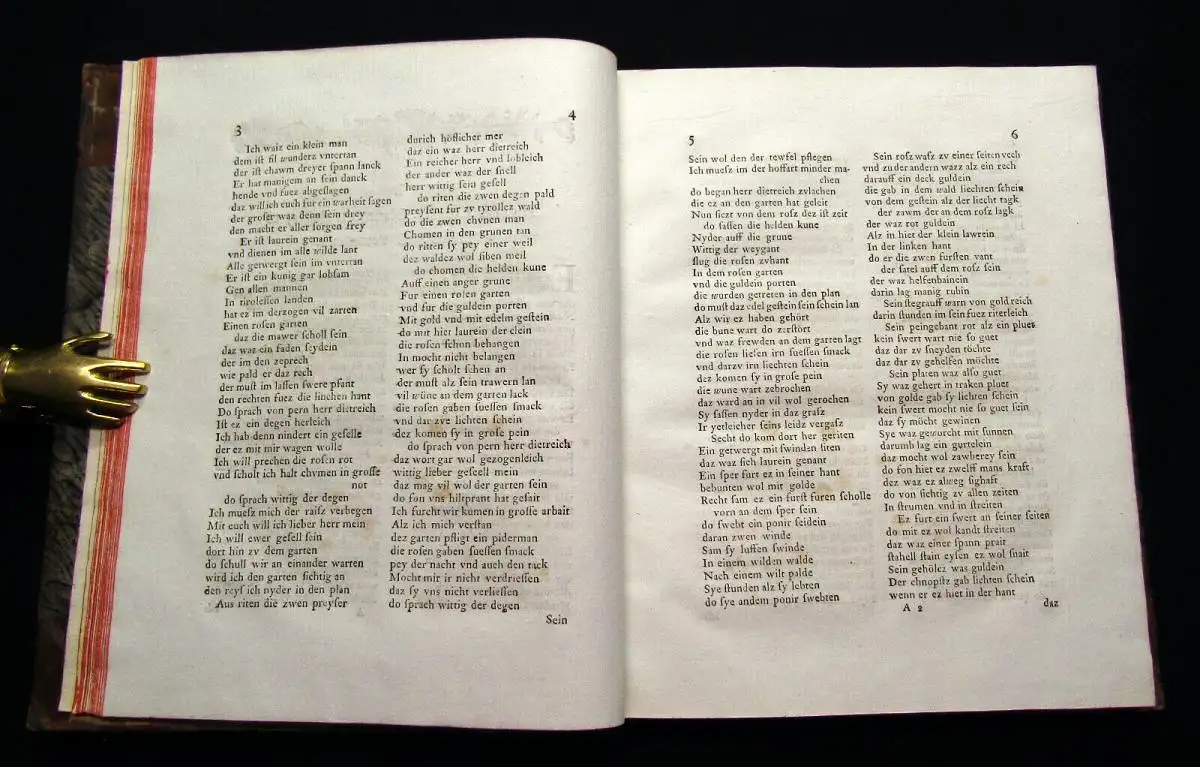 3
Ich waiz ein klein man
dem iſt fil wunderz vntertan
der iſt chawm dreyer ſpann lanck
Er hat manigem an ſein danck
hende vnd fuez abgeſlagen
daz will ich euch fur ein warheit ſagen
der groſer waz denn ſein drey
den macht er aller ſorgen frey
Er iſt laurein genant
vnd dienen im alle wilde lant
Alle getwergt ſein im vntertan
Er iſt ein kunig gar lobſam
Gen allen mannen
In tiroleſſen landen
hat ez im derzogen vil zarten
Einen roſen garten
daz die mawer ſcholl ſein
daz waz ein faden ſeydein
der im den zeprech
wie pald er daz rech
der muſt im laſſen ſwere pfant
den rechten fuez die linchen hant
Do ſprach von pern herr dietreich
Iſt ez ein degen herleich
Ich hab denn nindert ein geſelle
der ez mit mir wagen wolle
Ich will prechen die roſen rot
vnd ſcholt ich halt chvmen in groſſe
not
do ſprach wittig der degen
Ich mueſz mich der raiſz verbegen
Mit euch will ich lieber herr mein
Ich will ewer geſell ſein
dort hin zv dem garten
do ſchull wir an einander warten
wird ich den garten ſichtig an
den reyſ ich nyder in den plan
Aus riten die zwen preyſer
4
durich höflicher mer
daz ein waz herr dietreich
Ein reicher herr vnd lobleich
der ander waz der ſnell
herr wittig ſein geſell
do riten die zwen degen pald
preyſent fur zv tyrollez wald
do die zwen chvnen man
Chomen in den grunen tan
do ritten ſy pey einer weil
dez waldez wol ſiben meil
do chomen die helden kune
Auff einen anger grune
Fur einen roſen garten
vnd fur die guldein porten
Mit gold vnd mit edelm geſtein
do mit hier laurein der clein
die roſen ſchon behangen
In mocht nicht belangen
wer ſy ſcholt ſchen an
der muſt alz ſein trawern lan
vil wüne an dem garten lack
die roſen gaben ſueſſen ſmack
vnd dar zve lichten ſchein
dez komen ſy in groſe pein
do ſprach von pern herr dietreich
daz wort gar wol gezogenleich
wittig lieber geſell mein
daz mag vil wol der garten ſein
do fon vns hiltprant hat geſait
Ich furcht wir kumen in groſſe arbait
Alz ich mich verſtan
dez garten pfligt ein piderman
die roſen gaben ſueſſen ſmack
pey der nacht vnd auch den tack
Mocht mir ir nicht verdrieſſen
daz ſy vns nicht verlieſſen
do ſprach wittig der degen
Sein
5
Sein wol den der tewfel pflegen
Ich mueſz im der hoffart minder ma-
chen
do began herr dietreich zvlachen
die ez an den garten hat geleit
Nun ſiezt von dem roſz dez iſt zeit
do ſaſſen die helden kune
Nyder auff die grune
Wittig der weygant
ſlug die roſen zvhant
In dem roſen garten
vnd die guldein porten
die wurden getreten in den plan
do muſt daz edel geſtein ſein ſchein lan
Alz wir ez haben gehört
die bune wart do zerſtört
vnd waz frewden an dem garten lagt
die roſen lieſen irn ſueſſen ſmack
vnd darzv irn liechten ſchein
dez komen ſy in groſe pein
die wune wart zebrochen
daz ward an in vil wol gerochen
Sy ſaſſen nyder in daz grafz
Ir yetleicher ſeins leidz vergaſz
Secht do kom dort her geriten
Ein getwergt mit ſwinden ſiten
daz waz ſich laurein genant
Ein ſper furt ez in ſeiner hant
bebunten wol mit golde
Recht ſam ez ein furſt furen ſcholle
vorn an dem ſper ſein
do ſwebt ein ponir ſeidein
daran zwen winde
Sam ſy luffen ſwinde
In einem wilden walde
Nach einem wilt palde
Sye ſtunden alz ſy lebten
do ſye andem ponir ſwebten
6
Sein roſz waſz zv einer ſeiten vech
vnd zu der andern wazz alz ein rech
darauff ein deck guldein
die gab in dem wald liechten ſchein
von dem geſtein alz der liecht tagk
der zawm der an dem roſz lagk
der waz rot guldein
Alz in hiet der klein lawrein
In der linken hant
do er die zwen furſten vant
der ſatel auff dem roſz ſein
der waz helfenbainein
darin lag manig rubin
Sein ſtegrauff warn von gold reich
darin ſtunden im ſein fuez riterleich
Sein peingebant rot alz ein pluet
kein ſwert wart nie ſo guet
daz dar zv ſneyden töchte
daz dar zv gehelfen möchte
Sein platen waz alſo guet
Sy waz gehert in traken pluet
von golde gab ſy lichten ſchein
kein ſwert mocht nie ſo guet ſein
daz ſy möcht gewinen
Sye waz gewurcht mit ſunnen
darumb lag ein gurtelein
daz mocht wol zawberey ſein
do fon hiet ez zwelff mans kraft
dez waz ez alweg ſighaft
do von ſichtig zv allen zeiten
In ſtrumen vnd in ſtreiten
Ez furt ein ſwert an ſeiner ſeiten
do mit ez wol kandt ſtreiten
daz waz einer ſpann prait
ſtahell ſtain eyſen ez wol ſnait
Sein gehölcz was guldein
Der chnopſtz gab lichten ſchein
wenn er ez hiet in der hant
A 2
daz